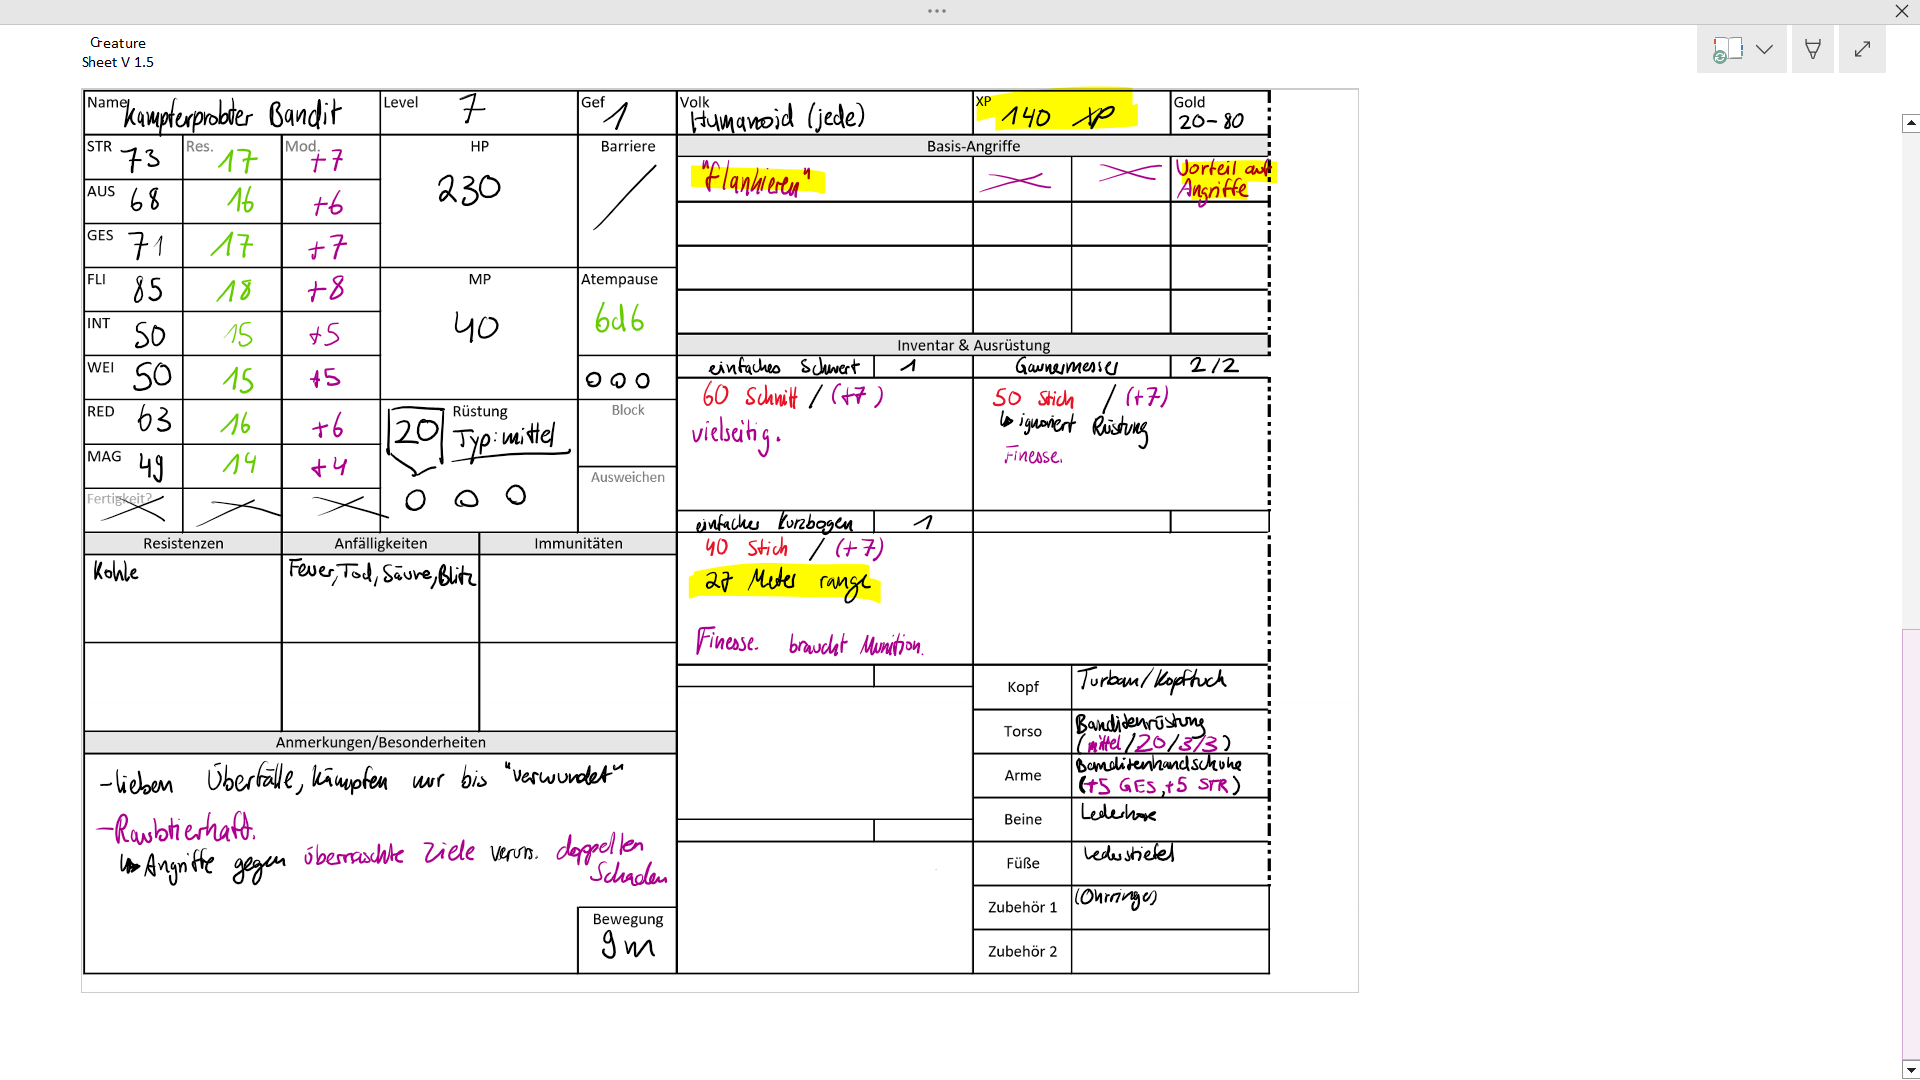 Creature
Sheet V 1.5
Name Kampferprobter Bandit
Level 7
Gef 1
Volk Humanoid (jede)
XP 140 XP
Gold 20-80
STR 73 Res. 17 Mod. +7
AUS 68 16 +6
GES 71 17 +7
FLI 85 18 +8
INT 50 15 +5
WEI 50 15 +5
RED 63 16 +6
MAG 49 14 +4
Fertigkeit?
HP
230
Barriere
MP
40
Atempause
6d6
20 Rüstung
Typ: mittel
Block
Ausweichen
Resistenzen Anfälligkeiten Immunitäten
Kohle Feuer, Tod, Säure, Blitz
Anmerkungen/Besonderheiten
- lieben Überfälle, kämpfen nur bis "verwundet"
- Raubtierhaft.
↳ Angriffe gegen überraschte Ziele verurs. doppelten
Schaden
Bewegung
9m
Basis-Angriffe
"Flankieren" Vorteil auf
Angriffe
Inventar & Ausrüstung
einfaches Schwert 1
60 Schnitt / (+7)
vielseitig.
Gaunermesser 2/2
50 Stich / (+7)
↳ ignoriert Rüstung
Finesse.
einfacher Kurzbogen 1
40 Stich / (+7)
27 Meter range
Finesse. braucht Munition.
Kopf Turban/Kopftuch
Torso Banditenrüstung
(mittel/20/3/3)
Arme Banditenhandschuhe
(+5 GES, +5 STR)
Beine Lederhose
Füße Lederstiefel
Zubehör 1 (Ohrringe)
Zubehör 2